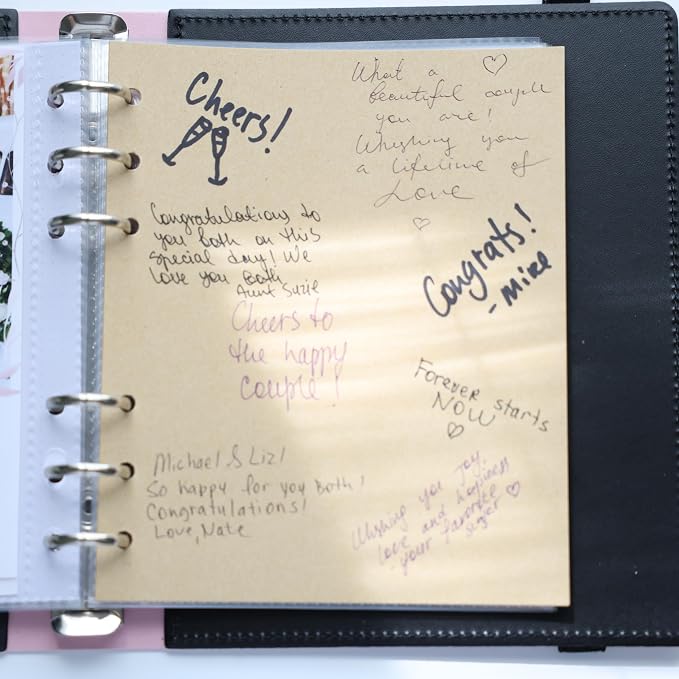 Cheers!
What a
beautiful couple
you are!
Whishing you
a lifetime of
Love
Congratulations to
you both on this
special day! We
love you both
Aunt Suzie
Congrats!
- Mike
Cheers to
the happy
couple!
Forever starts
NOW
Michael & Liz!
So happy for you Both!
Congratulations!
Love, Nate
Wishing you joy
love and happiness
- your favorite